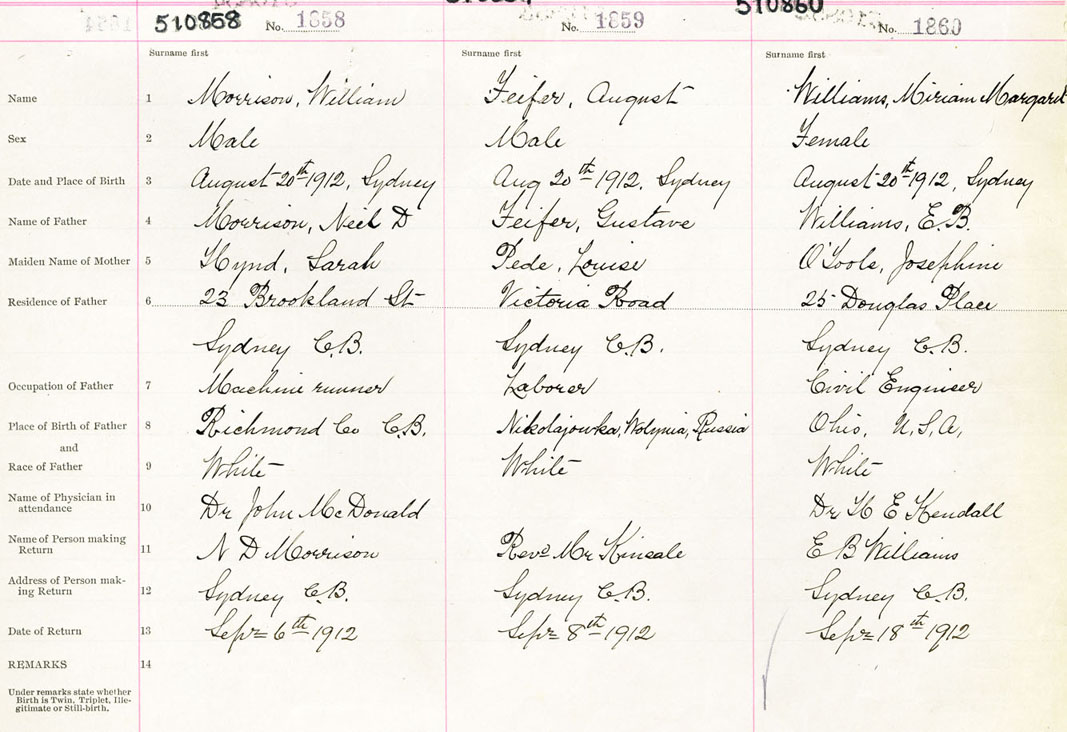 510858 No. 1858
No. 1859
510860 No. 1860
Surname first Surname first Surname first
Name 1 Morrison, William Feifer, August Williams, Miriam Margaret
Sex 2 Male Male Female
Date and Place of Birth 3 August 20th 1912, Sydney Aug 20th 1912, Sydney August 20th 1912, Sydney
Name of Father 4 Morrison, Neil D Feifer, Gustave Williams, E.B.
Maiden Name of Mother 5 Hynd, Sarah Pede, Louise O'Toole, Josephine
Residence of Father 6 23 Brookland St Victoria Road 25 Douglas Place
Sydney C.B. Sydney C.B. Sydney C.B.
Occupation of Father 7 Machine runner Laborer Civil Engineer
Place of Birth of Father 8 Richmond Co C.B. Nikolajowka, Wolynia, Russia Ohio, U.S.A,
and
Race of Father 9 White White White
Name of Physician in
attendance 10 Dr John McDonald Dr H E Kendall
Name of Person making
Return 11 N D Morrison Revd Mr Kinsale E B Williams
Address of Person mak-
ing Return 12 Sydney C.B. Sydney C.B. Sydney C.B.
Date of Return 13 Sept 6th 1912 Sept 8th 1912 Sept 18th 1912
REMARKS 14
Under remarks state whether
Birth is Twin, Triplet, Ille-
gitimate or Still-birth.